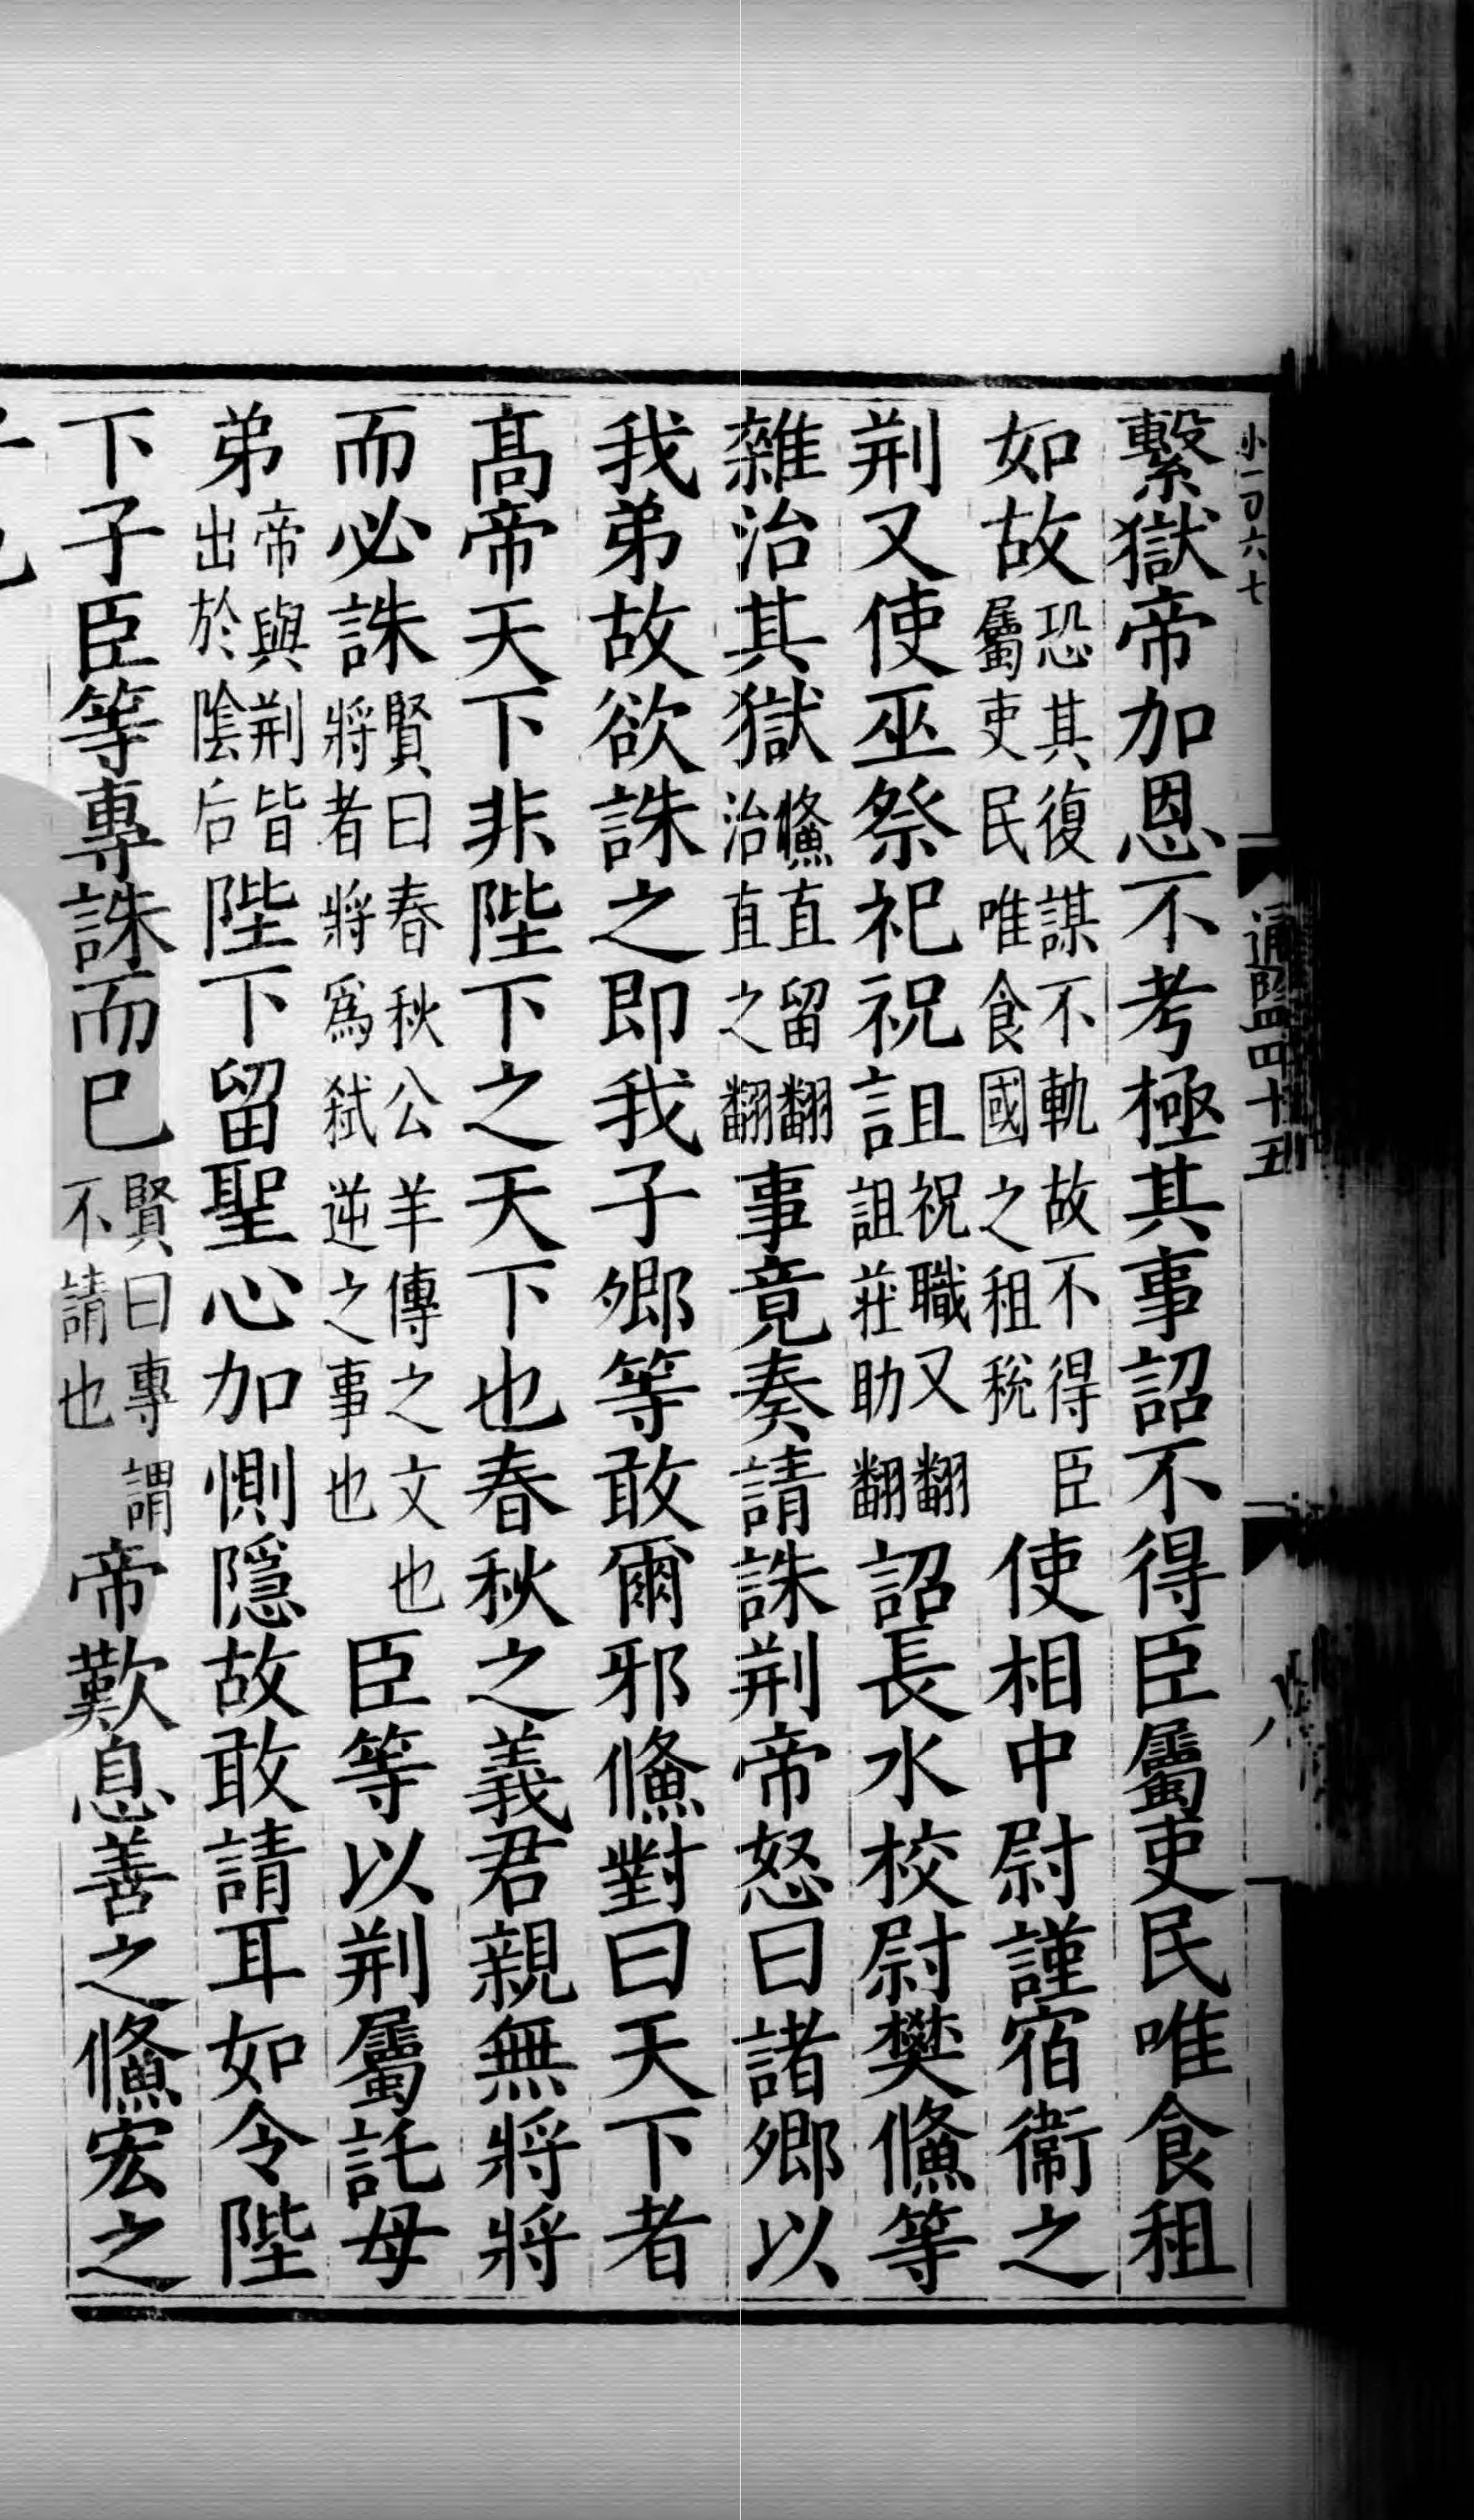 小一百六七
通鑑四十五
八
繫獄帝加恩不考極其事詔不得臣屬吏民唯食租
如故恐其復謀不軌故不得臣屬吏民唯食國之租稅使相中尉謹宿衞之
荆又使巫祭祀祝詛祝職又翻詛莊助翻詔長水校尉樊鯈等
雜治其獄鯈直留翻治直之翻事竟奏請誅荆帝怒曰諸卿以
我弟故欲誅之即我子卿等敢爾邪鯈對曰天下者
高帝天下非陛下之天下也春秋之義君親無將將
而必誅賢曰春秋公羊傳之文也將者將爲弑逆之事也臣等以荆屬託母
弟帝與荆皆出於陰后陛下留聖心加惻隱故敢請耳如令陛
下子臣等專誅而已賢曰專謂不請也帝歎息善之鯈宏之